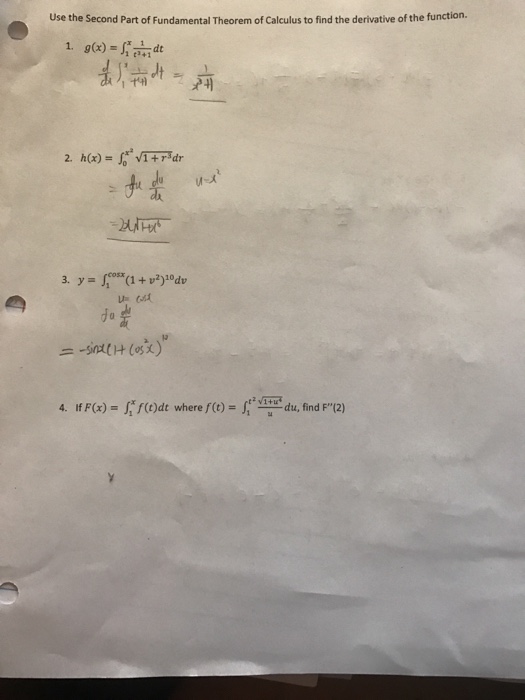 Use the Second Part of Fundamental Theorem of Calculus to find the derivative of the function.
1. g(x) = ∫₁ˣ 1/(t³+1) dt
d/dx ∫₁ˣ 1/(t³+1) dt = 1/(x³+1)
2. h(x) = ∫₀^(x²) √(1+r³) dr
= f(u) du/dx u=x²
= 2x√(1+x⁶)
3. y = ∫₁^(cosx) (1 + v²)¹⁰ dv
u= cosx
f(u) du/dx
= -sinx(1+(cos²x)¹⁰
4. If F(x) = ∫₁ˣ f(t)dt where f(t) = ∫₁^(t²) √(1+u⁴)/u du, find F''(2)